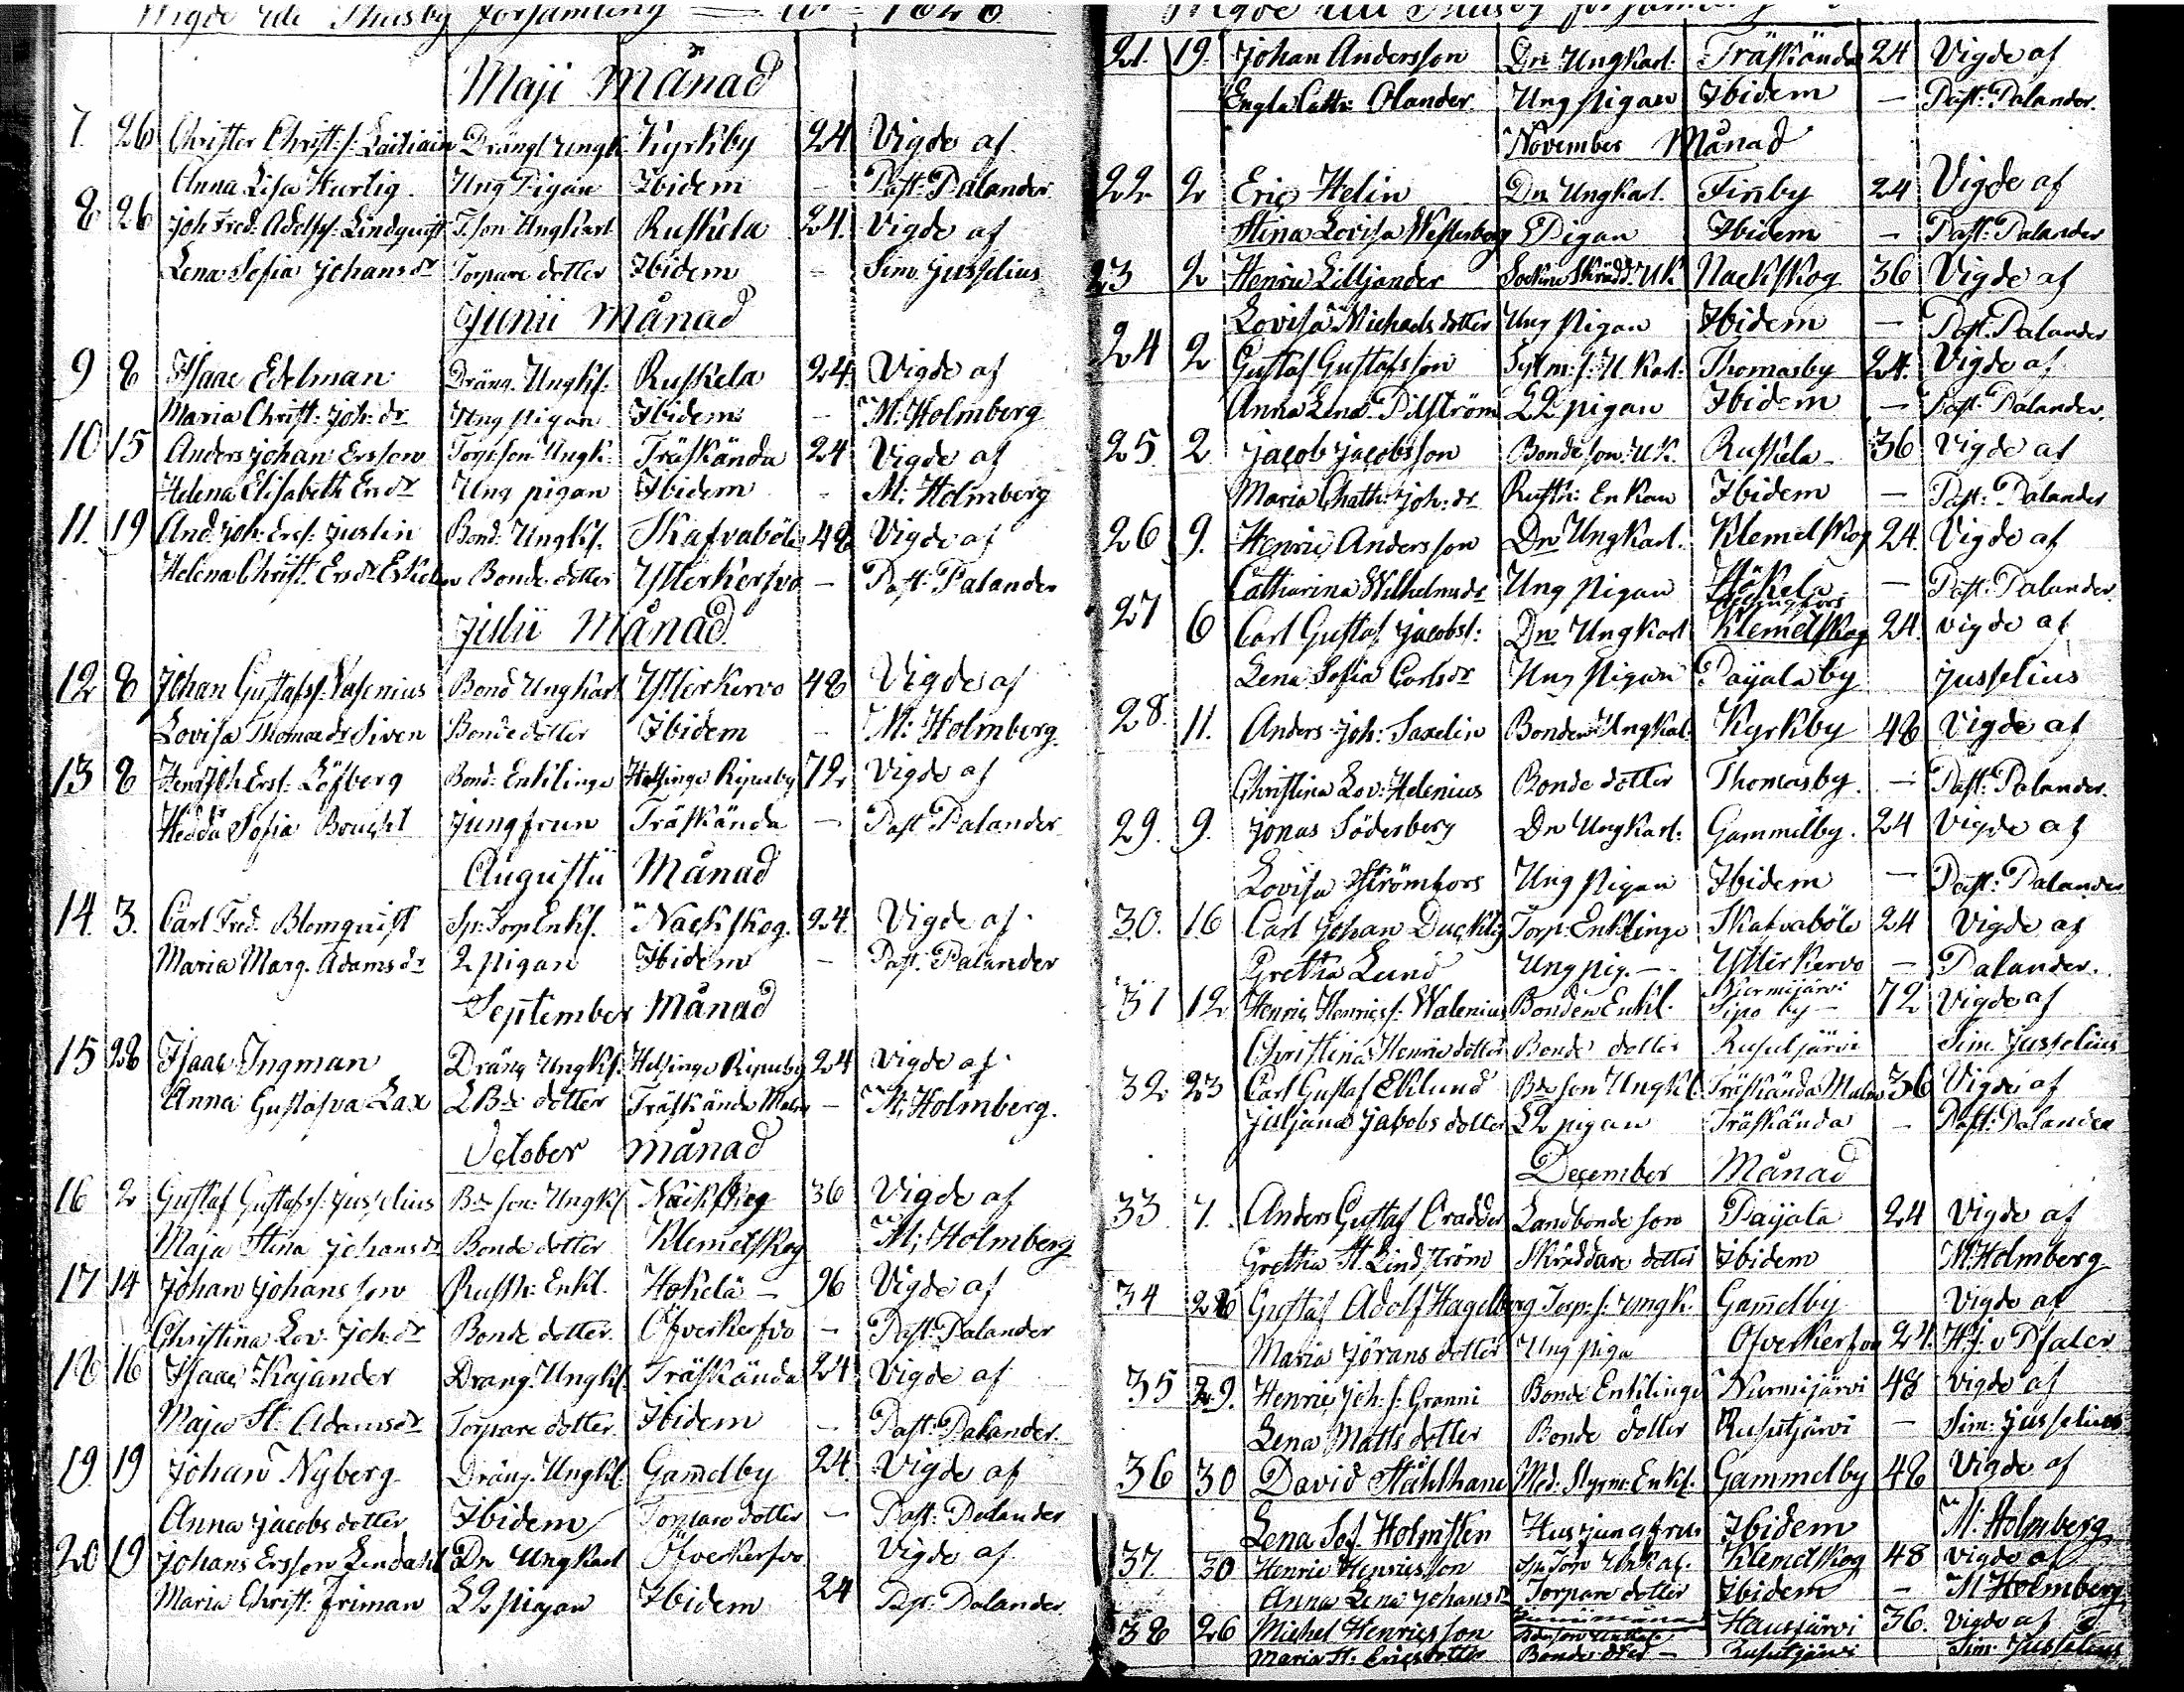 Maji Månad
7. 26 Christer Christ: s: Drängs Ungk: Kyrkby 24. Vigde af
Anna Lisa Hurtig Ung Pigan Ibidem – Past: Palander
8 26 Joh Fred: Adolfs: Lindquist T. son Ungkarl Ruskela 24. Vigde af
Lena Sofia Johansdr Torpare dotter Ibidem – Sim: Jusselius
Junii Månad
9 8 Isaac Edelman Dräng. Ungk: Ruskela 24. Vigde af
Maria Christ: Joh: dr Ung pigan Ibidem – M: Holmberg
10 15 Anders Johan Ersson Torp: son Ungk: Träskända 24 Vigde af
Helena Elisabeth Ersdr Ung pigan Ibidem – M: Holmberg
11. 19 And: Joh: Ersf: Justin Bond: Ungkl. Skafvaböle 48 Vigde af
Helena Christ. Ersdr Bonde dotter Ytterkerfvo – Past: Palander
Julii Månad
12 8 Johan Gustafss: Vasenius Bond Ungkarl Ytterkervo 48 Vigde af
Lovisa Thomædr Siven Bonde dotter Ibidem – M: Holmberg
13 8 Henr Joh Ersf: Löfberg Bond: Enklinge Helsinge 72 Vigde af
Hedda Sofia Jungfrun Träskända – Past Palander
Augusti Månad
14. 3. Carl Fred. Blomquist Sp: Torp Enkl. Nackskog. 24. Vigde af
Maria Marg. Adamsdr L pigan Ibidem – Past. Palander
September Månad
15 28 Isaac Ingman Dräng Ungkl. Helsinge 24 Vigde af
Anna Gustafva Lax LBde dotter Träskända Malm – M: Holmberg.
October Månad
16 2 Gustaf Gustafss: Jusselius Bde son: Ungkl Nackskog 36 Vigde af
Maja Stina Johansdr Bonde dotter Klemetskog M: Holmberg
17 14 Johan Johansson Rusth: Enkl. Hökelä – 96 Vigde af
Christina Lov: Joh: dr Bonde dotter. Öfverkerfvo – Past: Palander
18 16 Isaac Kajander Dräng. Ungkl. Träskända 24 Vigde af
Maja St: Adamsdr Torpare dotter Ibidem – Past: Palander
19. 19 Johan Nyberg Dräng. Ungkl. Gamelby 24. Vigde af
Anna Jacobs dotter Ibidem Torpare dotter – Past: Palander
20 19 Johans Ersson Lindahl Dn Ungkarl Öfverkerfvo Vigde af
Maria Christ: Friman LL pigan Ibidem 24 Past: Palander
21. 19. Johan Andersson Dn Ungkarl. Träskända 24 Vigde af
Engla Cath: Olander. Ung Pigan Ibidem – Past: Palander.
November Månad
22 2 Eric Helin Dn Ungkarl. Finby 24 Vigde af
Stina Lovisa Westerberg Pigan Ibidem – Past: Palander
23 2 Henric Lilljander Sockne Skrädd: UK Nackskog 36 Vigde af
Lovisa Michaelsdotter Ung pigan Ibidem – Past: Palander
24 2 Gustaf Gustafsson Thomasby 24. Vigde af
Anna Lena Pilström LL pigan Ibidem – Past: Palander.
25 2 Jacob Jacobsson Bonde son: UK. Ruskela – 36 Vigde af
Maria Chath: Joh: dr Rusth: Enkan Ibidem – Past: Palander
26 9. Henric Andersson Dn Ungkarl. Klemetskog 24. Vigde af
Catharina Wilhelmsdr Ung Pigan Hökela – Past: Palander.
27 6 Carl Gustaf Jacobss: Dn Ungkarl Klemetskog 24. Vigde af
Lena Sofia Carlsdr Ung Pigan Paijala by Jusselius
28. 11. Anders Joh: Saxelin Bonden Ungkal. Kyrkby 48 Vigde af
Christina Lov: Helenius Bonde dotter Thomasby. – Past: Palander.
29. 9. Jonas Söderberg Dn Ungkarl. Gammelby. 24 Vigde af
Lovisa Strömfors Ung Pigan Ibidem – Past: Palander
30. 16 Carl Johan Torp: Enklinge Skafvaböle 24 Vigde af
Gretha Lund Ung pig. – Ytterkervo – Palander.
Nurmijärvi
31 12 Henric Henricss: Walenius Bonden Enkl. by – 72 Vigde af
Christina Henricdotter Bonde dotter Rusutjärvi Sim: Jusselius
32 23 Carl Gustaf Eklund Bde son Ungkl. Träskända Malm 36 Vigde af
Juljana Jakobs dotter LL pigan Träskända – Past: Palander
December Månad
33 7. Anders Gustaf Landbonde son Paijala 24 Vigde af
Gretha St. Lindström Skräddare dotter Ibidem M: Holmberg
34 28 Gustaf Adolf Hagelberg Torp: s. Ungk. Gamelby Vigde af
Maria Jörans dotter Ung piga Öfverkerfvo 24. H. J. v Pfaler
35 29. Henric Joh: s: Granni Bonde Enklinge Nurmijärvi 48 Vigde af
Lena Matts dotter Bonde dotter Rusutjärvi – Sim: Jusselius
36 30 David Ståhlhane Enkl. Gammelby 48 Vigde af
Lena Sof. Holmsten Husjungfrun Ibidem M: Holmberg
37. 30 Henric Henricsson Klemetskog 48 Vigde af
Anna Lena Johansdr Torpare dotter Ibidem – M Holmberg
38 26 Michel Henricsson Hausjärvi 36. Vigde af
Maria St: Ericsdotter Bonde dotter – Rusutjärvi Sim: Jusselius